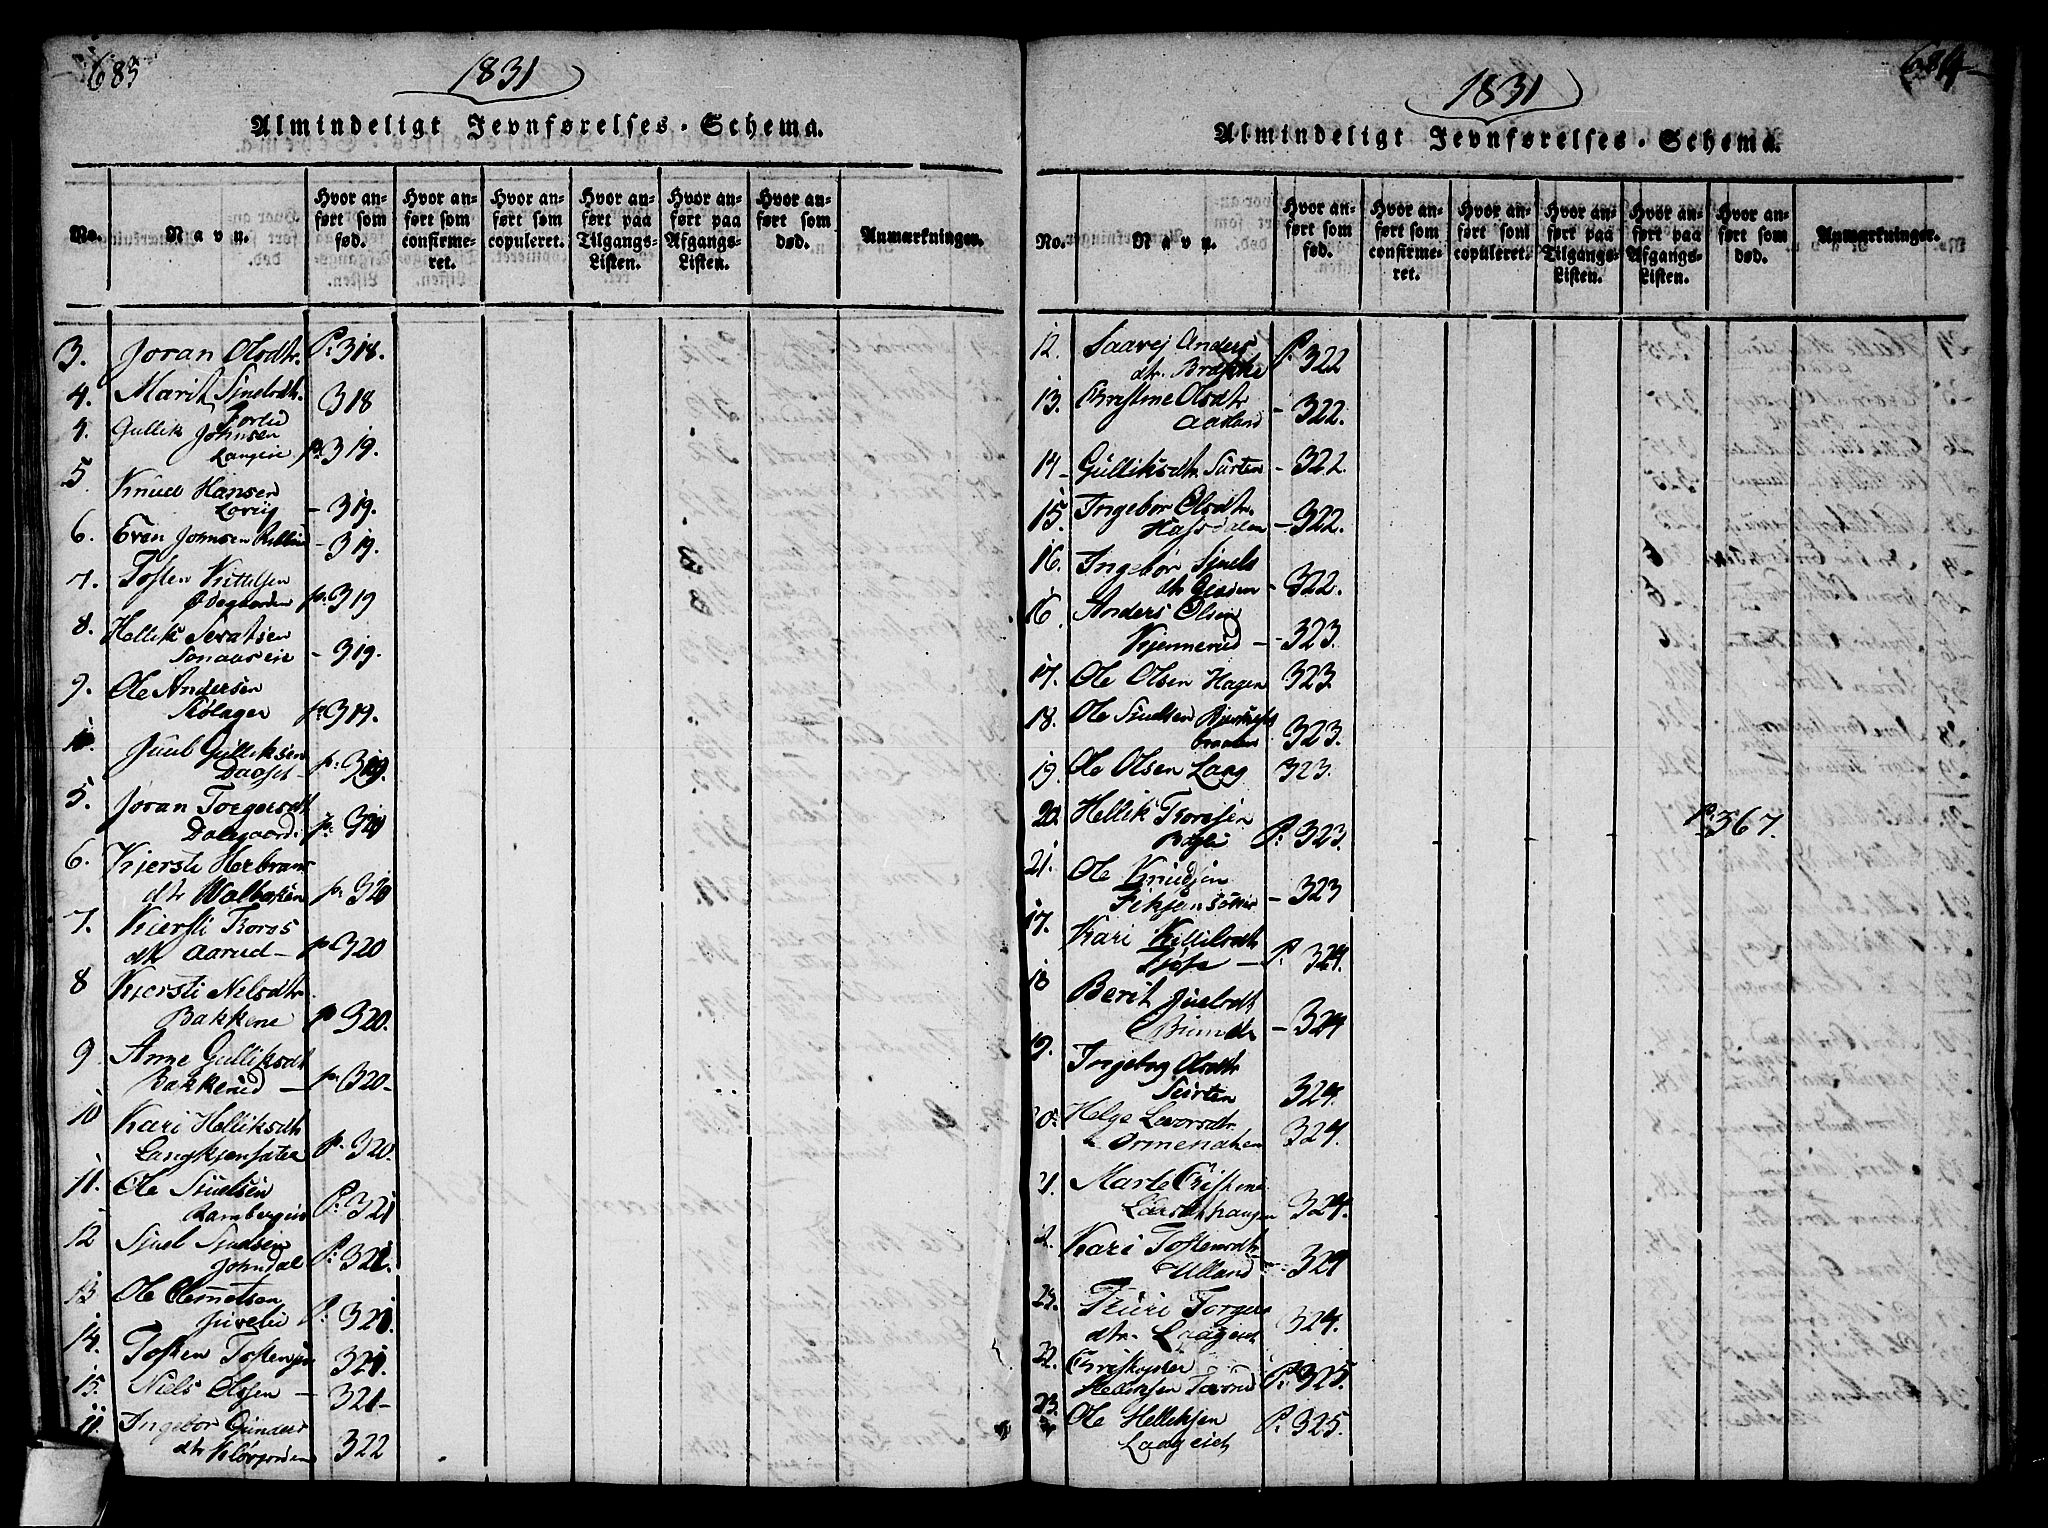 683
1831
Almindeligt Jevnførelses-Schema.
No.
Navn.
Hvor anført som fød.
Hvor anført som confirmeret.
Hvor anført som copuleret.
Hvor anført paa Tilgangs-Listen.
Hvor anført paa Afgangs-Listen.
Hvor anført som død.
Anmærkninger.
3. Joran Olsdtr. P: 318.
4. Marit Sjuelsdtr. 318
4. Gullik Johnsen
Langeie p 319.
5 Knud Hansen
Lovrig - 319.
6. Even Johnsen - 319.
7. Tosten Kittelsen
Ødegaarden p. 319
8. Hellik
- 319.
9. Ole Andersen
Skølager p 319.
Juul Gulliksen
p: 319.
5. Joran Torgersdt
Dalegaard p: 320
6. Kjersti Herbrans
dtr p: 320
7. Kjersti Toros
dtr Aarud - p 320
8 Kjersti Nilsdtr
Bakkene p 320.
9 Anne Gulliksdt
Bakkerud - p. 320-
10 Kari Helliksdtr
p. 320.
11. Ole Sjuelsen
Rambergeie P: 321
12 Sjuel Sjuelsen
Johndal P: 321.
13 Ole Clemetsen
P: 321.
14. Tosten Tostensen 321.
15. Niels Olsen - 321-
11. Ingebor Gunders
dtr 322
684
1831
Almindeligt Jevnførelses-Schema.
No.
Navn.
Hvor anført som fød.
Hvor anført som confirmeret.
Hvor anført som copuleret.
Hvor anført paa Tilgangs-Listen.
Hvor anført paa Afgangs-Listen.
Hvor anført som død.
Anmærkninger.
12. Saavej Anders
dtr. P. 322
13. Christine Olsdtr
Aasland - 322.
14- Gulliksdtr Surten - 322.
15. Ingebor Olsdtr.
Hassdalen - 322.
16. Ingebor Sjuels
dtr - 322.
16 Anders Olsen
Kjennerud - 323.
17. Ole Olsen Hagen 323.
18. Ole Sjuelsen
braaten 323.
19. Ole Olsen Laag 323.
20. Hellik Torresen
P: 323. P: 367.
21. Ole Knudsen
- 323
17. Kari Kittilsdtr
- P. 324.
18 Berit Juelsdt
- 324
19. Ingeborg Olsdtr
Surten 324.
0. Helge Lavorsdtr.
324.
1. Marte Cristene
Laarshaugen 324.
2. Kari Tostensdtr
Ulland 324
23. Turi Torgers
dtr. Laageie 324.
22. Christopher
P: 325.
23. Ole Helliksen
Laageie P: 325.